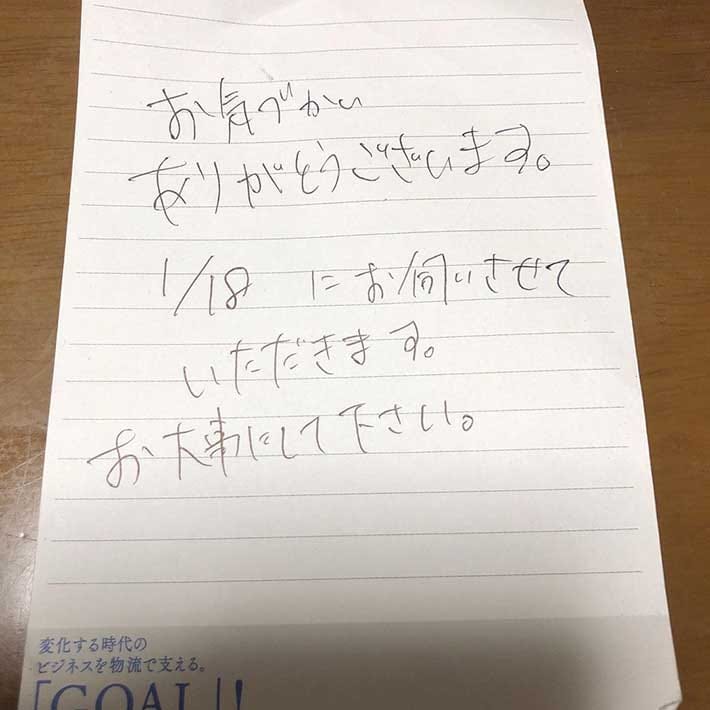 お気づかい
ありがとうございます。
1/18 にお伺いさせて
いただきます。
お大事にして下さい。
変化する時代の
ビジネスを物流で支える。
「GOAL」!